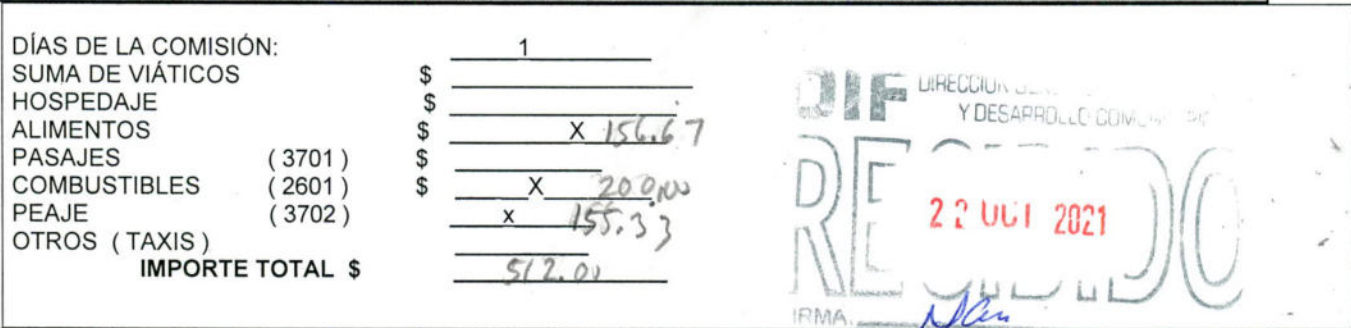 DÍAS DE LA COMISIÓN: 1
SUMA DE VIÁTICOS $
HOSPEDAJE $
ALIMENTOS $ X 156.67
PASAJES ( 3701 ) $
COMBUSTIBLES ( 2601 ) $ X 200.00
PEAJE ( 3702 ) x 155.33
OTROS ( TAXIS )
IMPORTE TOTAL $ 512.00
DIF
Y DESARROLLO
RECIBIDO
22 OCT 2021
IRMA.